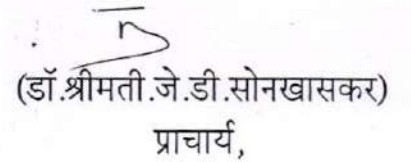 (डॉ.श्रीमती.जे.डी.सोनखासकर)
प्राचार्य,